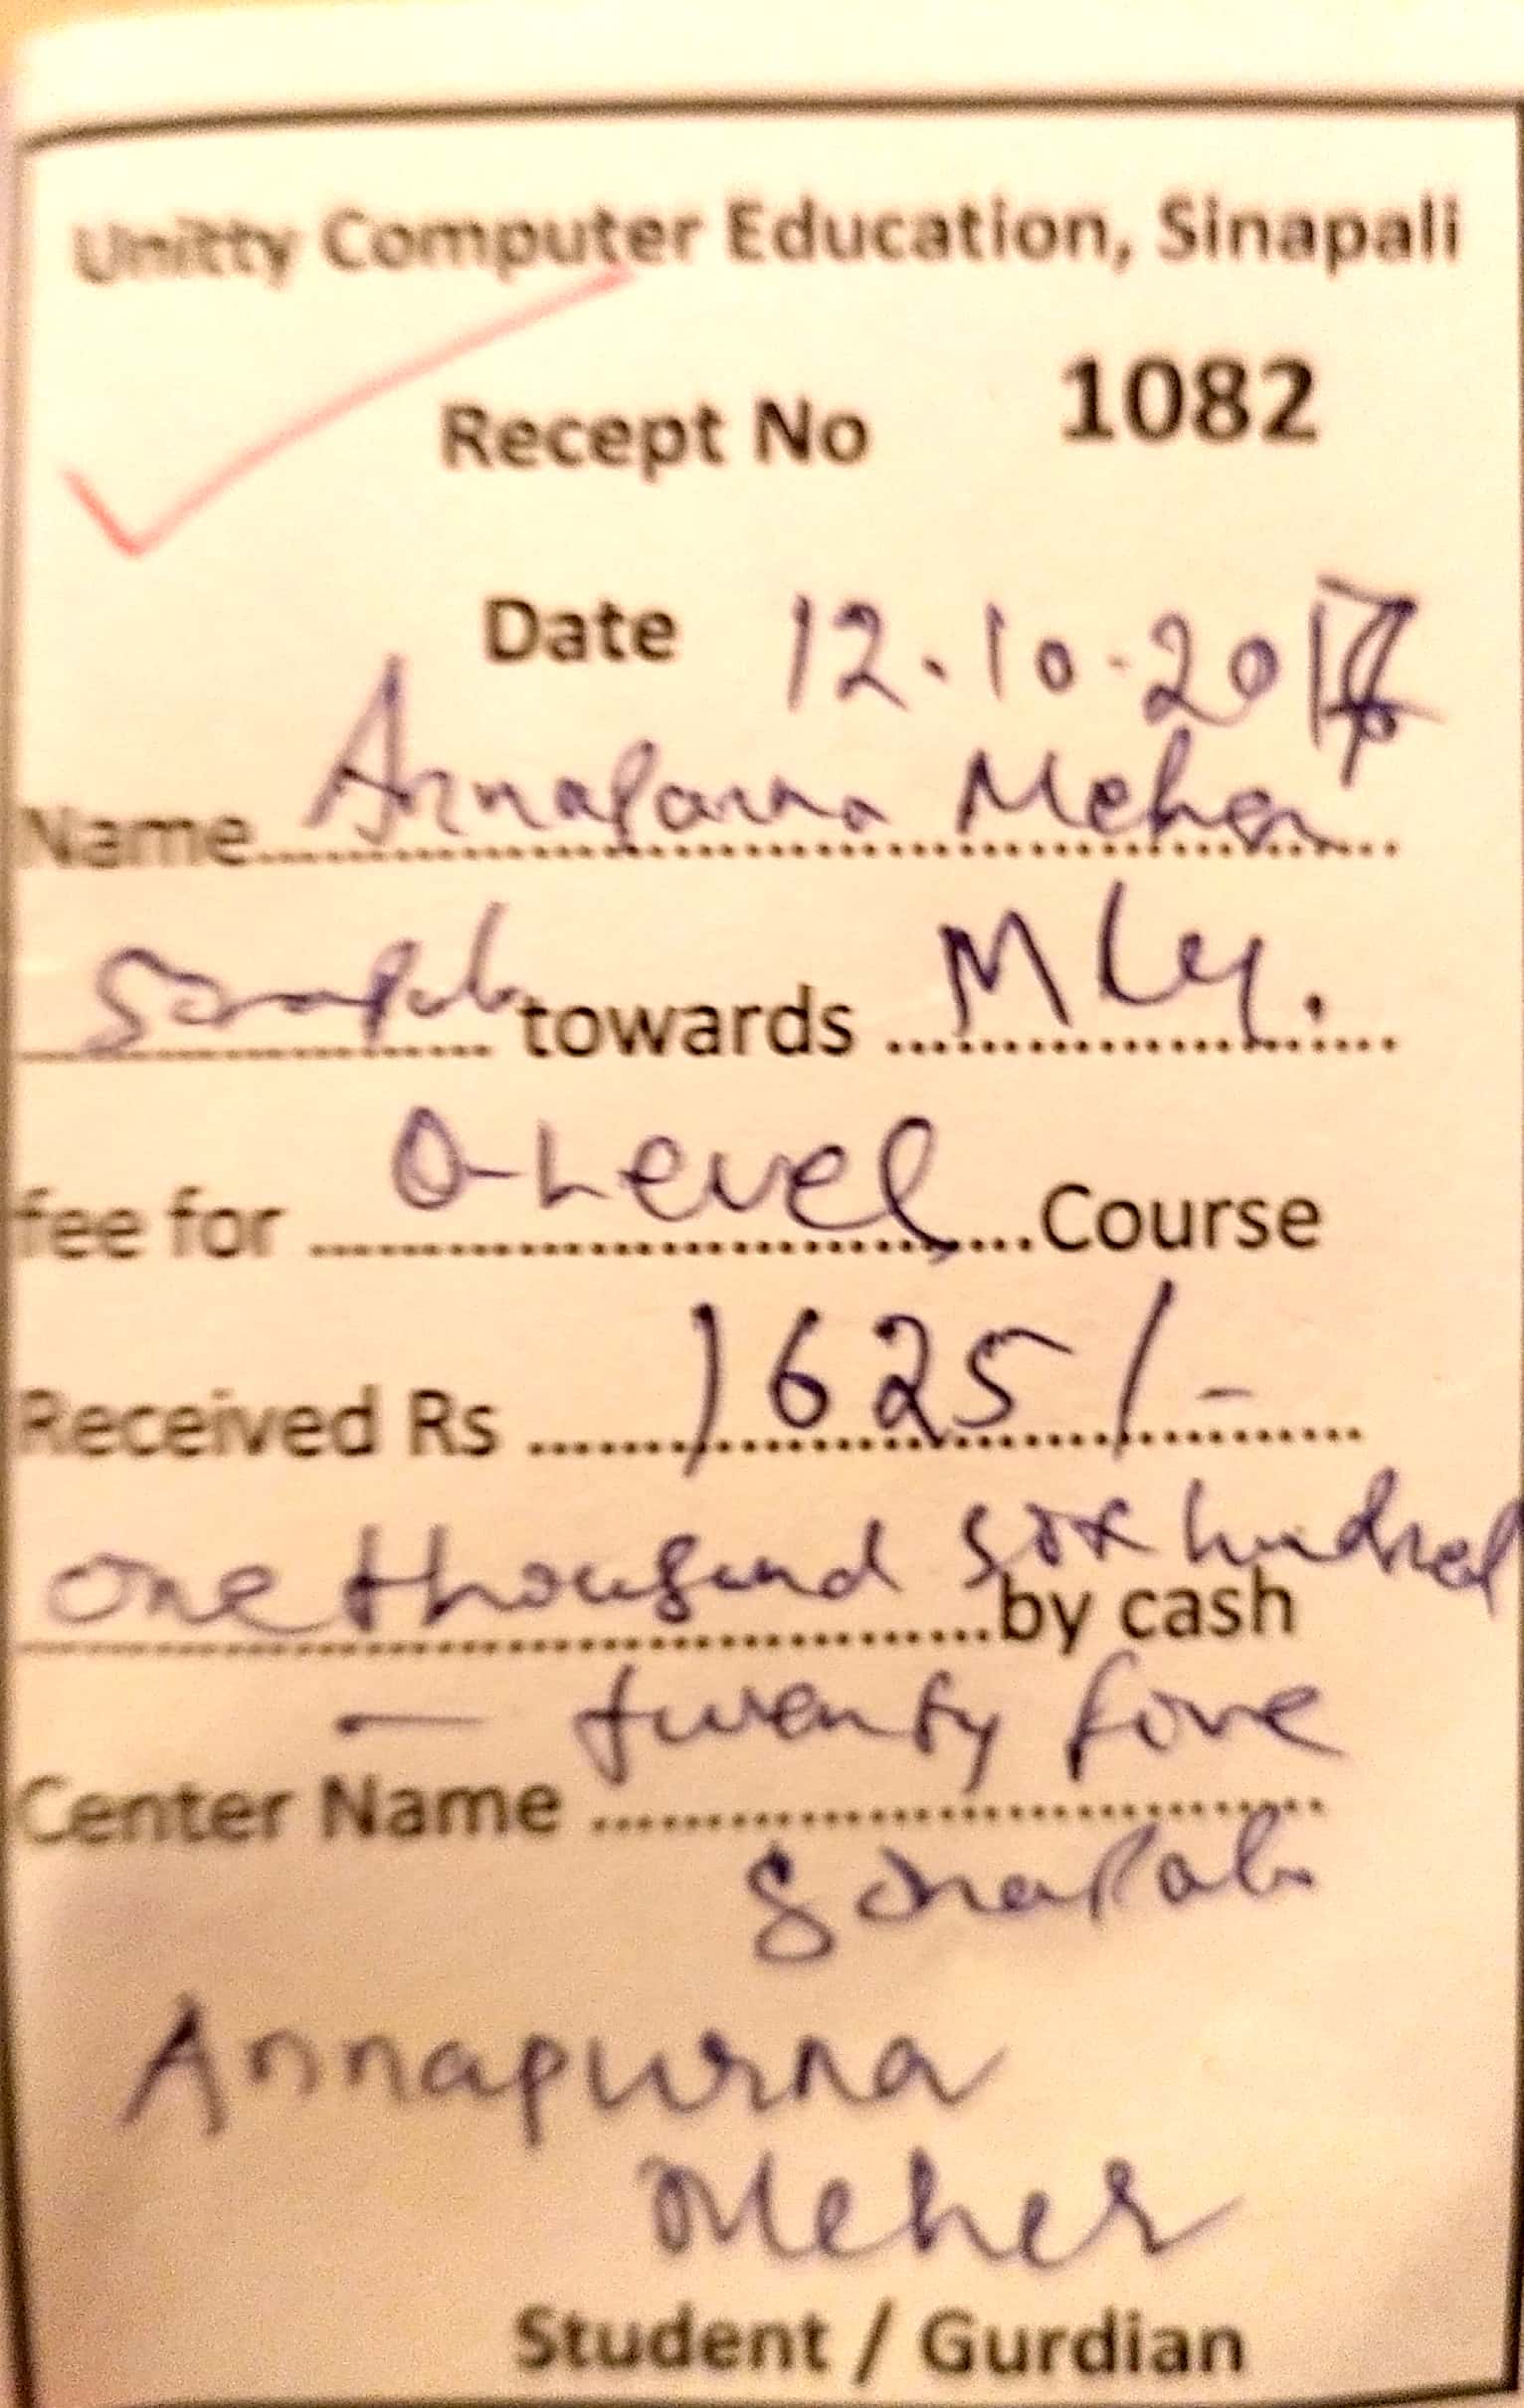 Unitty Computer Education, Sinapali
Recept No 1082
Date 12.10.2017
Name Annapurna Meher
Sinapali towards Mly.
fee for O-Level Course
Received Rs 1625/-
One thousand six hundred
by cash
— twenty five
Center Name
Sinapali
Annapurna
Meher
Student / Gurdian